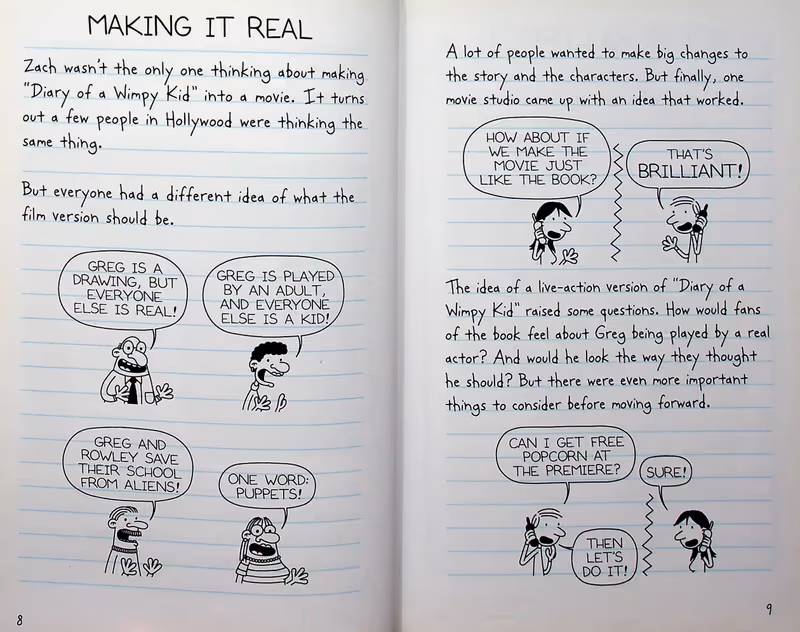 MAKING IT REAL
Zach wasn't the only one thinking about making
"Diary of a Wimpy Kid" into a movie. It turns
out a few people in Hollywood were thinking the
same thing.
But everyone had a different idea of what the
film version should be.
GREG IS A
DRAWING, BUT
EVERYONE
ELSE IS REAL!
GREG IS PLAYED
BY AN ADULT,
AND EVERYONE
ELSE IS A KID!
GREG AND
ROWLEY SAVE
THEIR SCHOOL
FROM ALIENS!
ONE WORD:
PUPPETS!
8
A lot of people wanted to make big changes to
the story and the characters. But finally, one
movie studio came up with an idea that worked.
HOW ABOUT IF
WE MAKE THE
MOVIE JUST
LIKE THE BOOK?
THAT'S
BRILLIANT!
The idea of a live-action version of "Diary of a
Wimpy Kid" raised some questions. How would fans
of the book feel about Greg being played by a real
actor? And would he look the way they thought
he should? But there were even more important
things to consider before moving forward.
CAN I GET FREE
POPCORN AT
THE PREMIERE?
SURE!
THEN
LET'S
DO IT!
9